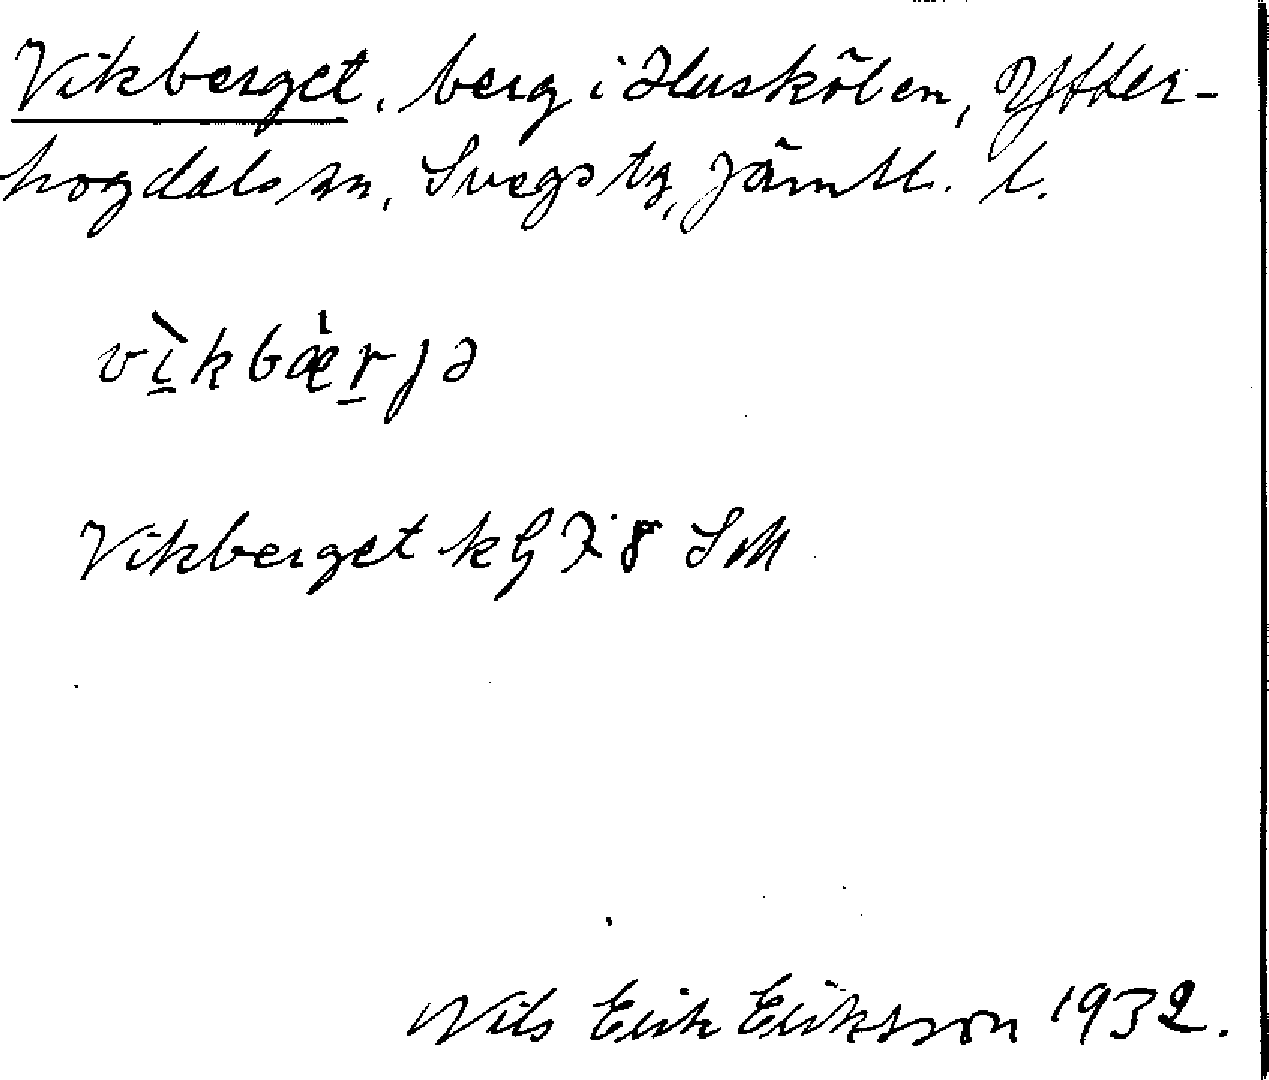 Vikberget, berg i Huskölen, Ytter-
hogdals sn, Svegs tg, Jämtl. l.
vìkbæ̀rjə
Vikberget kG 78 SM
Nils Erik Eriksson 1932.